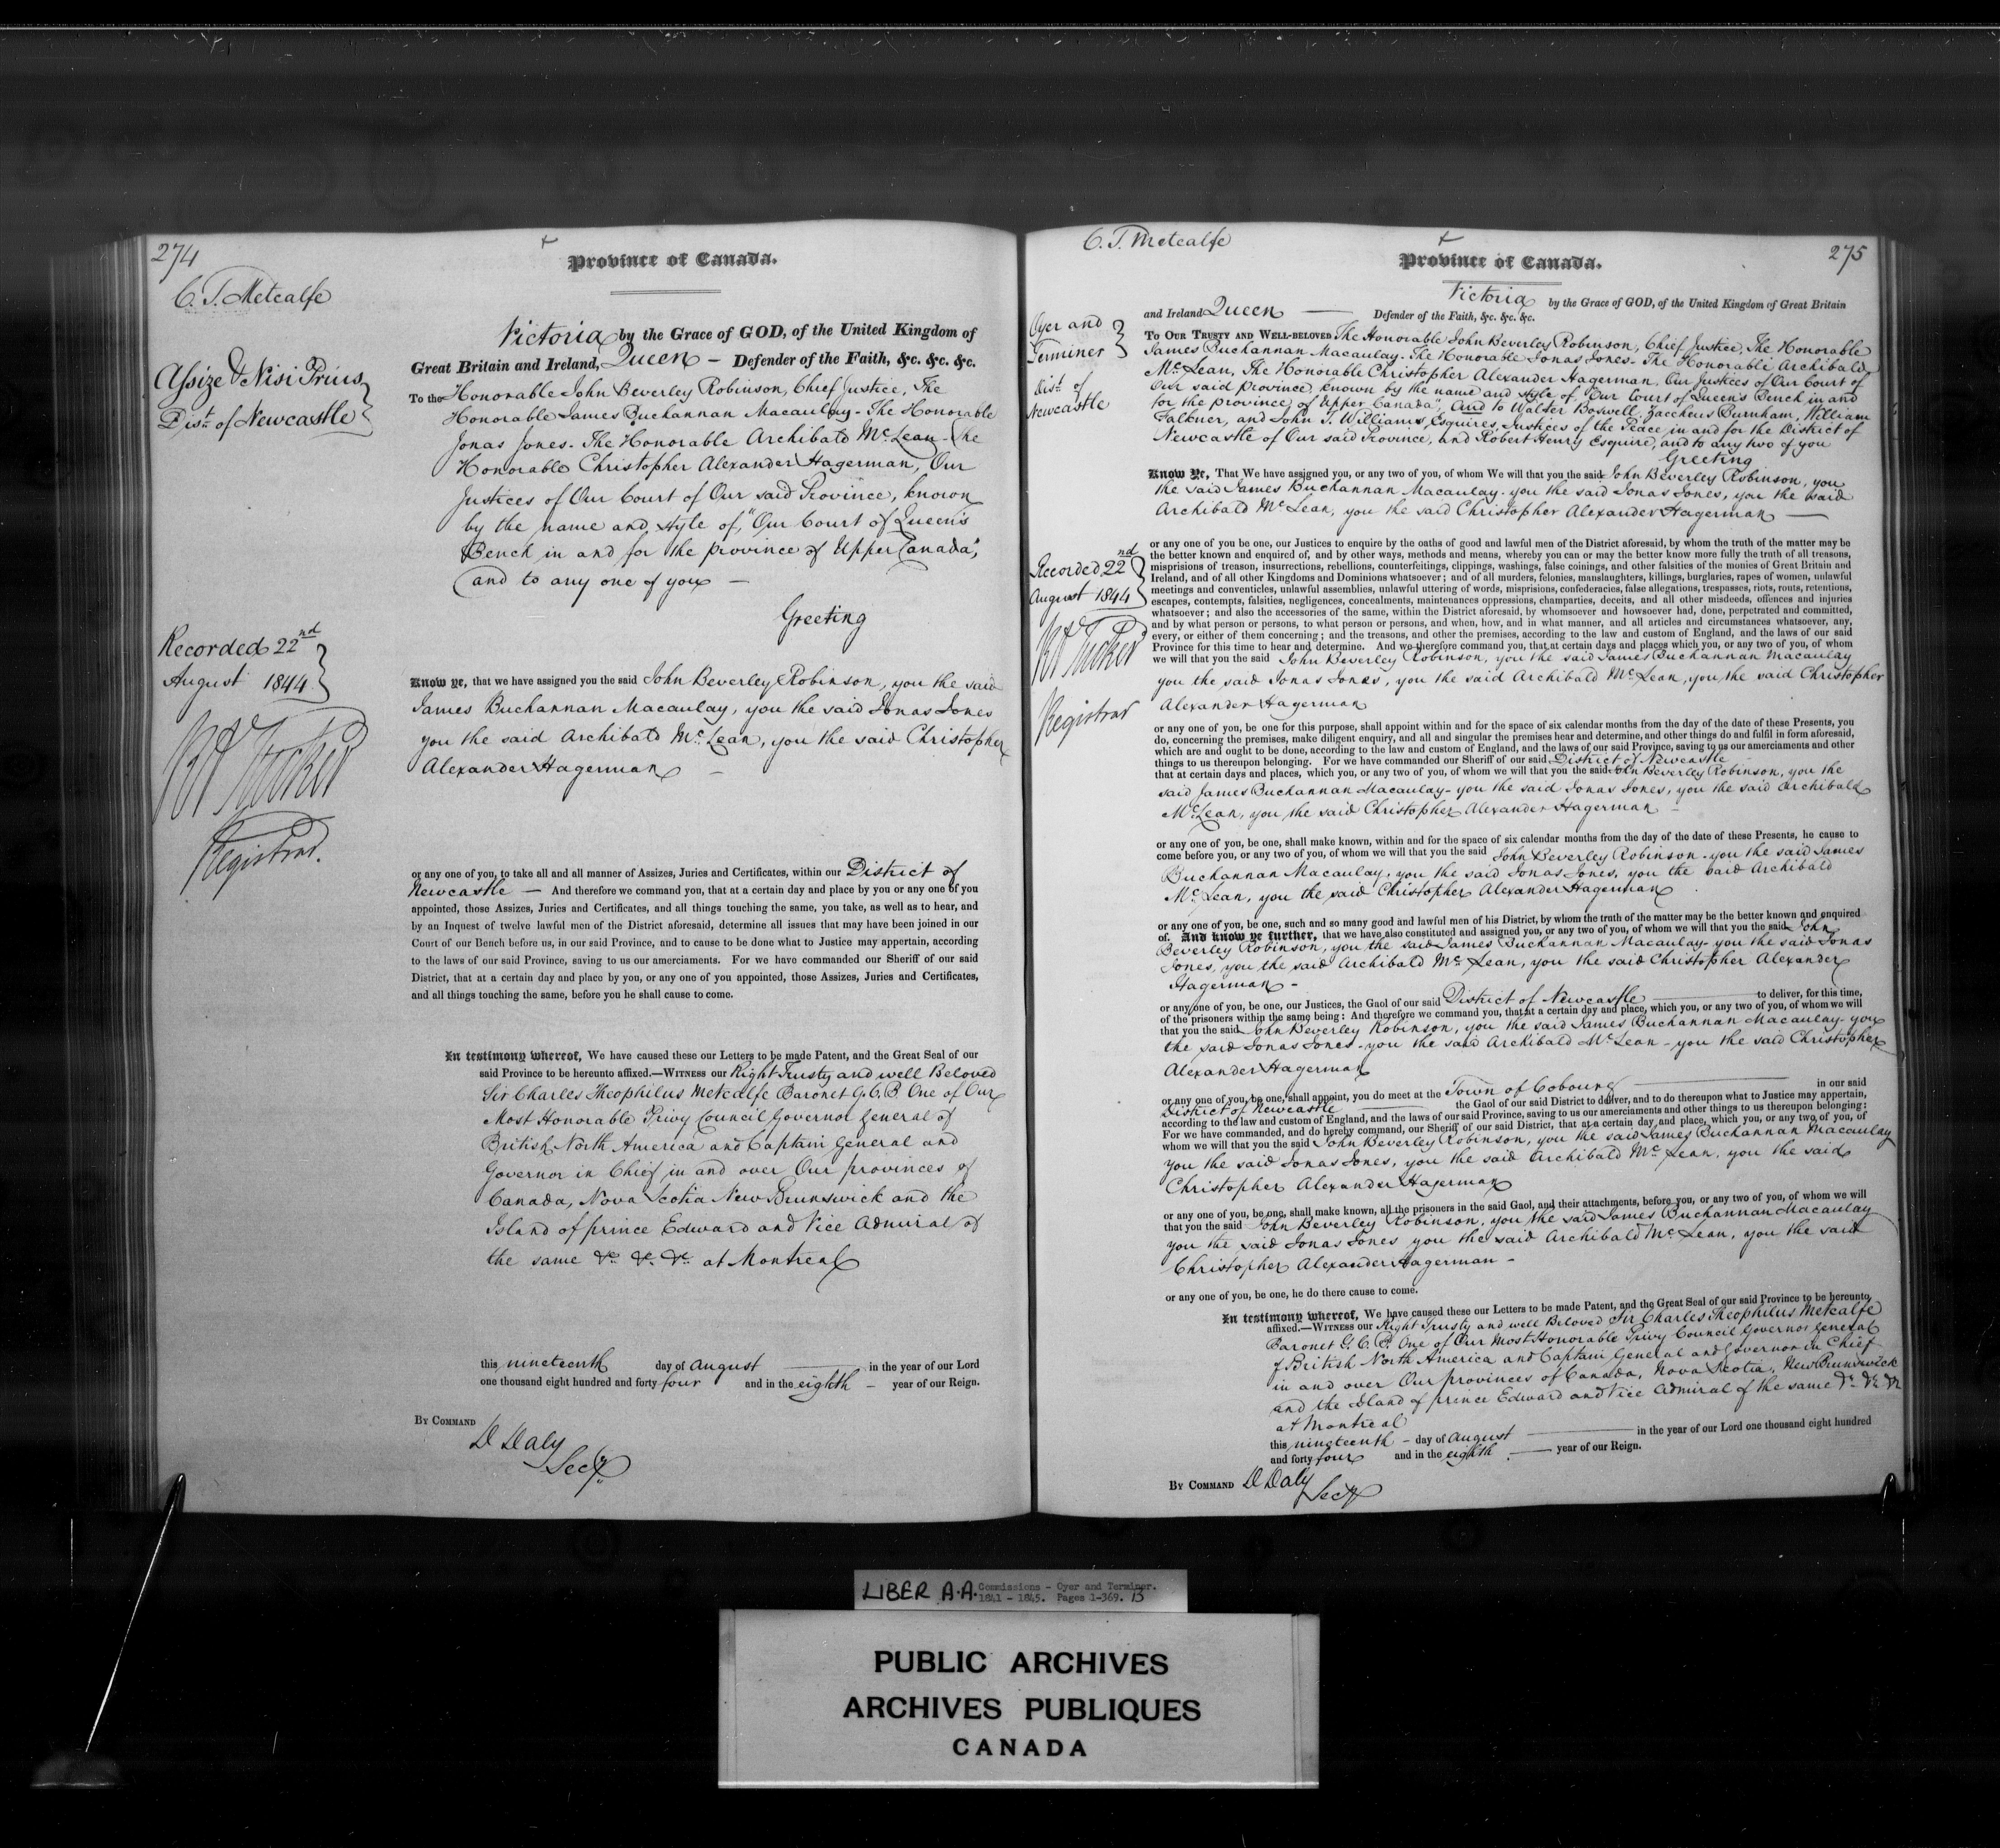 274
C. T. Metcalfe
Province of Canada.
Assize & Nisi Prius
Dist. of Newcastle
Victoria by the Grace of GOD, of the United Kingdom of
Great Britain and Ireland, Queen — Defender of the Faith, &c. &c. &c.
To the Honorable John Beverley Robinson, Chief Justice, The
Honorable James Buchannan Macaulay - The Honorable
Jonas Jones - The Honorable Archibald McLean - The
Honorable Christopher Alexander Hagerman, Our
Justices of Our Court of Our said Province, known
by the name and style of, "Our Court of Queen's
Bench in and for the province of Upper Canada",
and to any one of you —
Greeting
Recorded 22nd
August 1844
Registrar.
Know ye, that we have assigned you the said John Beverley Robinson, you the said
James Buchannan Macaulay, you the said Jonas Jones
you the said Archibald McLean, you the said Christopher
Alexander Hagerman —
or any one of you, to take all and all manner of Assizes, Juries and Certificates, within our District of
Newcastle — And therefore we command you, that at a certain day and place by you or any one of you
appointed, those Assizes, Juries and Certificates, and all things touching the same, you take, as well as to hear, and
by an Inquest of twelve lawful men of the District aforesaid, determine all issues that may have been joined in our
Court of our Bench before us, in our said Province, and to cause to be done what to Justice may appertain, according
to the laws of our said Province, saving to us our amerciaments. For we have commanded our Sheriff of our said
District, that at a certain day and place by you, or any one of you appointed, those Assizes, Juries and Certificates,
and all things touching the same, before you he shall cause to come.
In testimony whereof, We have caused these our Letters to be made Patent, and the Great Seal of our
said Province to be hereunto affixed.—WITNESS our Right Trusty and well Beloved
Sir Charles Theophilus Metcalfe Baronet G.C.B. One of Our
Most Honorable Privy Council Governor General of
British North America and Captain General and
Governor in Chief in and over Our provinces of
Canada, Nova Scotia New Brunswick and the
Island of prince Edward and Vice Admiral of
the same &c. &c. &c. at Montreal
this nineteenth day of August — in the year of our Lord
one thousand eight hundred and forty four and in the eighth — year of our Reign.
BY COMMAND
D Daly
Secy.
C. T. Metcalfe
275
Province of Canada.
Oyer and
Terminer
Dist. of
Newcastle
Victoria by the Grace of GOD, of the United Kingdom of Great Britain
and Ireland Queen — Defender of the Faith, &c. &c. &c.
TO OUR TRUSTY AND WELL-BELOVED The Honorable John Beverley Robinson, Chief Justice, The Honorable
James Buchannan Macaulay - The Honorable Jonas Jones - The Honorable Archibald
McLean, The Honorable Christopher Alexander Hagerman, Our Justices of Our Court of
Our said province, known by the name and style of, "Our Court of Queen's Bench in and
for the province of Upper Canada", And to Walter Boswell, Zaccheus Burnham, William
Falkner, and John T. Williams, Esquires, Justices of the Peace in and for the District of
Newcastle of Our said Province, and Robert Henry Esquire, and to any two of you
Greeting
Know Ye, That We have assigned you, or any two of you, of whom We will that you the said John Beverley Robinson, you
the said James Buchannan Macaulay - you the said Jonas Jones, you the said
Archibald McLean, you the said Christopher Alexander Hagerman —
Recorded 22nd
August 1844
Registrar
or any one of you be one, our Justices to enquire by the oaths of good and lawful men of the District aforesaid, by whom the truth of the matter may be
the better known and enquired of, and by other ways, methods and means, whereby you can or may the better know more fully the truth of all treasons,
misprisions of treason, insurrections, rebellions, counterfeitings, clippings, washings, false coinings, and other falsities of the monies of Great Britain and
Ireland, and of all other Kingdoms and Dominions whatsoever; and of all murders, felonies, manslaughters, killings, burglaries, rapes of women, unlawful
meetings and conventicles, unlawful assemblies, unlawful uttering of words, misprisions, confederacies, false allegations, trespasses, riots, routs, retentions,
escapes, contempts, falsities, negligences, concealments, maintenances oppressions, champarties, deceits, and all other misdeeds, offences and injuries
whatsoever; and also the accessories of the same, within the District aforesaid, by whomsoever and howsoever had, done, perpetrated and committed,
and by what person or persons, to what person or persons, and when, how, and in what manner, and all articles and circumstances whatsoever, any,
every, or either of them concerning; and the treasons, and other the premises, according to the law and custom of England, and the laws of our said
Province for this time to hear and determine. And we therefore command you, that at certain days and places which you, or any two of you, of whom
we will that you the said John Beverley Robinson, you the said James Buchannan Macaulay
you the said Jonas Jones, you the said Archibald McLean, you the said Christopher
Alexander Hagerman
or any one of you, be one for this purpose, shall appoint within and for the space of six calendar months from the day of the date of these Presents, you
do, concerning the premises, make diligent enquiry, and all and singular the premises hear and determine, and other things do and fulfil in form aforesaid,
which are and ought to be done, according to the law and custom of England, and the laws of our said Province, saving to us our amerciaments and other
things to us thereupon belonging. For we have commanded our Sheriff of our said District of Newcastle
that at certain days and places, which you, or any two of you, of whom we will that you the said John Beverley Robinson, you the
said James Buchannan Macaulay - you the said Jonas Jones, you the said Archibald
McLean, you the said Christopher Alexander Hagerman —
or any one of you, be one, shall make known, within and for the space of six calendar months from the day of the date of these Presents, he cause to
come before you, or any two of you, of whom we will that you the said John Beverley Robinson - you the said James
Buchannan Macaulay, you the said Jonas Jones, you the said Archibald
McLean, you the said Christopher Alexander Hagerman
or any one of you, be one, such and so many good and lawful men of his District, by whom the truth of the matter may be the better known and enquired
of. And know ye further, that we have also constituted and assigned you, or any two of you, of whom we will that you the said John
Beverley Robinson, you the said James Buchannan Macaulay - you the said Jonas
Jones, you the said Archibald McLean, you the said Christopher Alexander
Hagerman -
or any one of you, be one, our Justices, the Gaol of our said District of Newcastle — to deliver, for this time,
of the prisoners within the same being: And therefore we command you, that at a certain day and place, which you, or any two of you, of whom we will
that you the said John Beverley Robinson, you the said James Buchannan Macaulay - you
the said Jonas Jones - you the said Archibald McLean - you the said Christopher
Alexander Hagerman
or any one of you, be one, shall appoint, you do meet at the Town of Cobourg — in our said
District of Newcastle — the Gaol of our said District to deliver, and to do thereupon what to Justice may appertain,
according to the law and custom of England, and the laws of our said Province, saving to us our amerciaments and other things to us thereupon belonging:
For we have commanded, and do hereby command, our Sheriff of our said District, that at a certain day and place, which you, or any two of you, of
whom we will that you the said John Beverley Robinson, you the said James Buchannan Macaulay
you the said Jonas Jones, you the said Archibald McLean, you the said
Christopher Alexander Hagerman
or any one of you, be one, shall make known, all the prisoners in the said Gaol, and their attachments, before you, or any two of you, of whom we will
that you the said John Beverley Robinson, you the said James Buchannan Macaulay
you the said Jonas Jones you the said Archibald McLean, you the said
Christopher Alexander Hagerman -
or any one of you, be one, he do there cause to come.
In testimony whereof, We have caused these our Letters to be made Patent, and the Great Seal of our said Province to be hereunto
affixed.—WITNESS our Right Trusty and well Beloved Sir Charles Theophilus Metcalfe
Baronet G.C.B. One of Our Most Honorable Privy Council Governor General
of British North America and Captain General and Governor in Chief
in and over Our provinces of Canada, Nova Scotia, New Brunswick
and the Island of prince Edward and Vice Admiral of the same &c. &c. &c.
at Montreal
this nineteenth — day of August — in the year of our Lord one thousand eight hundred
and forty four and in the eighth — year of our Reign.
BY COMMAND D Daly
Secy
LIBER A.A. Commissions - Oyer and Terminer.
1841 - 1845. Pages 1-369. B
PUBLIC ARCHIVES
ARCHIVES PUBLIQUES
CANADA